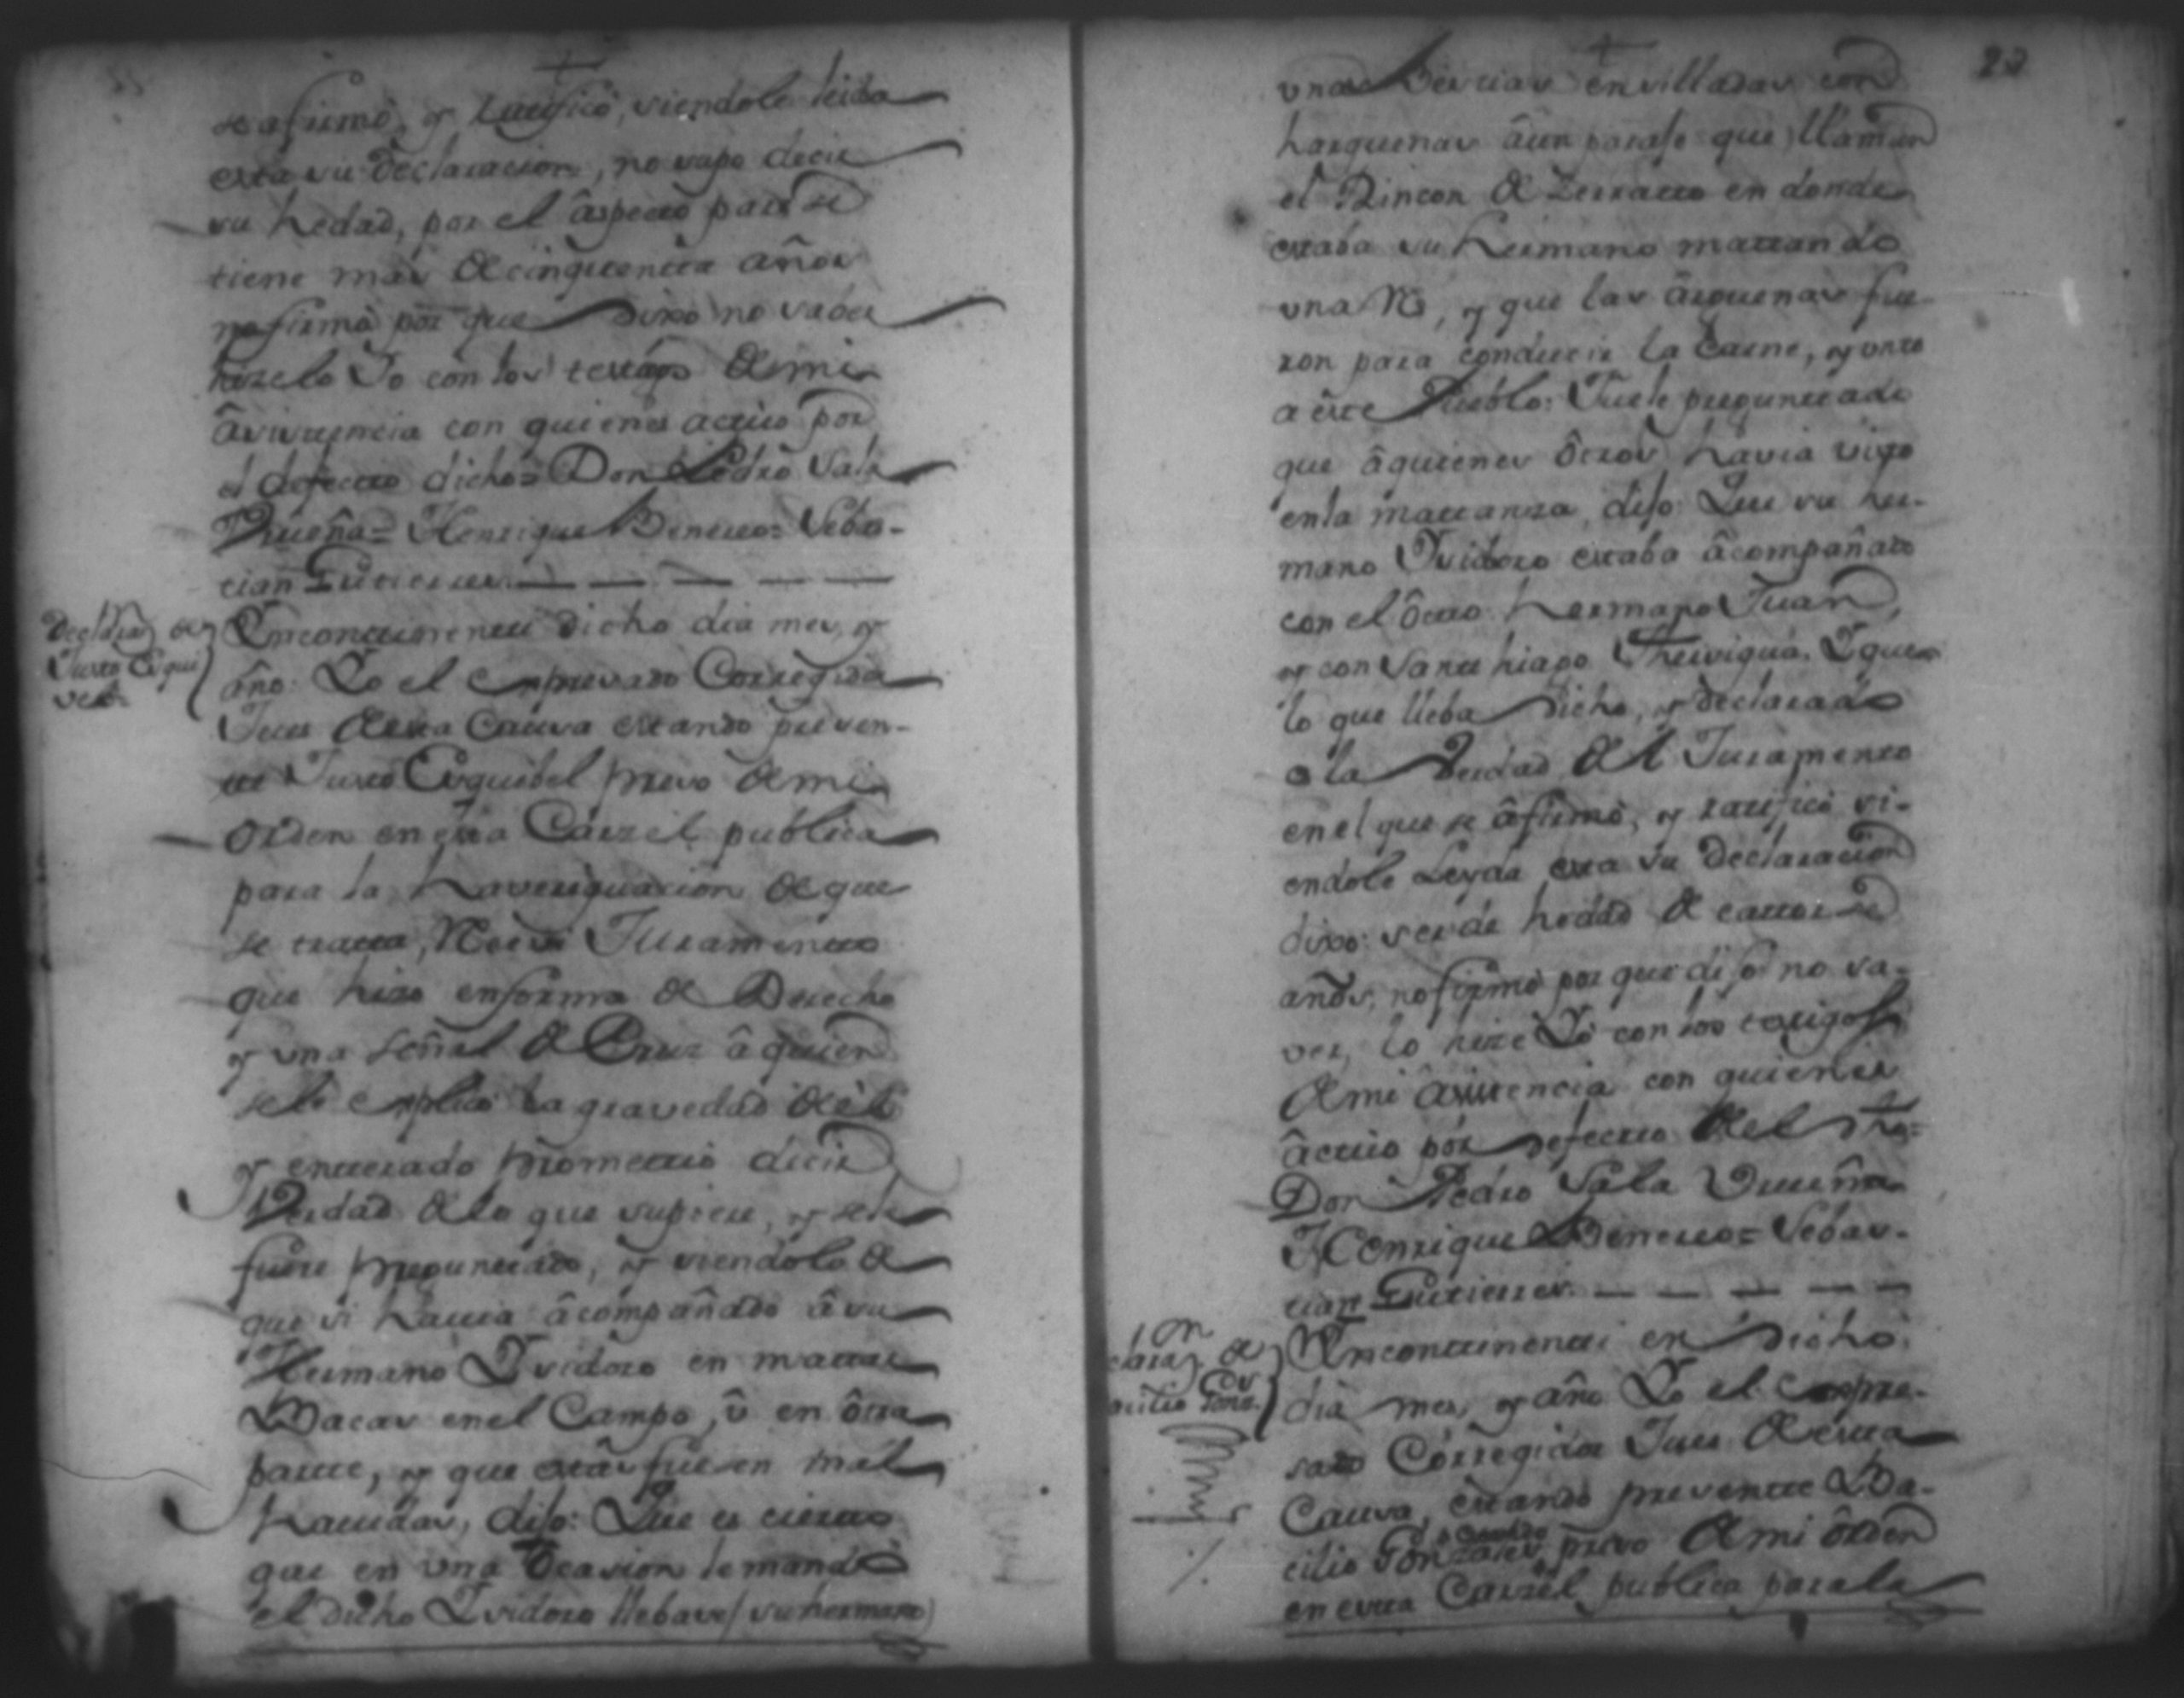 se afirmò, y ratificò, siendole leida
esta su declaracion, no supo decir
su hedad, por el âspecto parese
tiene mas de cinquenta años
no firmò por que Dixo no saber
hizelo Yo con los testigos de mi
âsistencia con quienes actuo por
el defecto dicho= Don Pedro Sala
Vrueña= Henrique Beneito= Sebas-
tian Gutierres
Yncontinenti dicho dia mes, y
año: Yo el expresado Corregidor
Jues de esta Causa estando presen-
te Justo Esquibel preso de mi
orden en esta Carzel publica
para la haveriguacion de que
se tratta, Recivi Juramento
que hizo en forma de Derecho
y una señal de Cruz â quien
sele explicò la gravedad de èl
y entterado promettiò decir
Verdad de lo que supiere, y sele
fuere preguntado, y siendolo de
que si havia âcompañado â su
Hermano Ysidoro en mattar
Bacas en el Campo, û en ôtra
partte, y que estas fuesen mal
havidas, diso: Que es ciertto
que en una Ocasion le mandò
el dicho Ysidoro llebase su hermano
Declaraz.n de
Justo Esqui
vel
22
unas Bestias ensilladas con
harguenas âun paraje que llaman
el Rincon de Zerratto en donde
estaba su hermano mattando
una Rs, y que las ârguenas fue-
ron para conducir la Carne, y unto
a este Pueblo: Fuele preguntado
que âquienes ôtros havia visto
en la mattanza, diso: Que su her-
mano Ysidoro estaba âcompañado
con el ôtro hermano Juan,
y con Santhiago. Y que
lo que lleba dicho, y declarado
es la Verdad del Juramento
en el que se âfirmò, y ratificò si-
endole Leyda esta su declaracion
dixo: ser de hedad de cattorse
años, no firmò por que diso no sa-
ver, lo hize Yo con los testigos
de mi asistencia con quienes
âctuo por defecto del dho=
Don Pedro Sala Vrueña
Henrique Beneito= Sebas-
tian Gutierres.
Yncontinenti en dicho
dia mes, y año Yo el expre-
sado Corregidor Jues de esta
Causa, estando presente Ba-
cilio Gonzales preso de mi ôrden
en esta Carzel publica para la